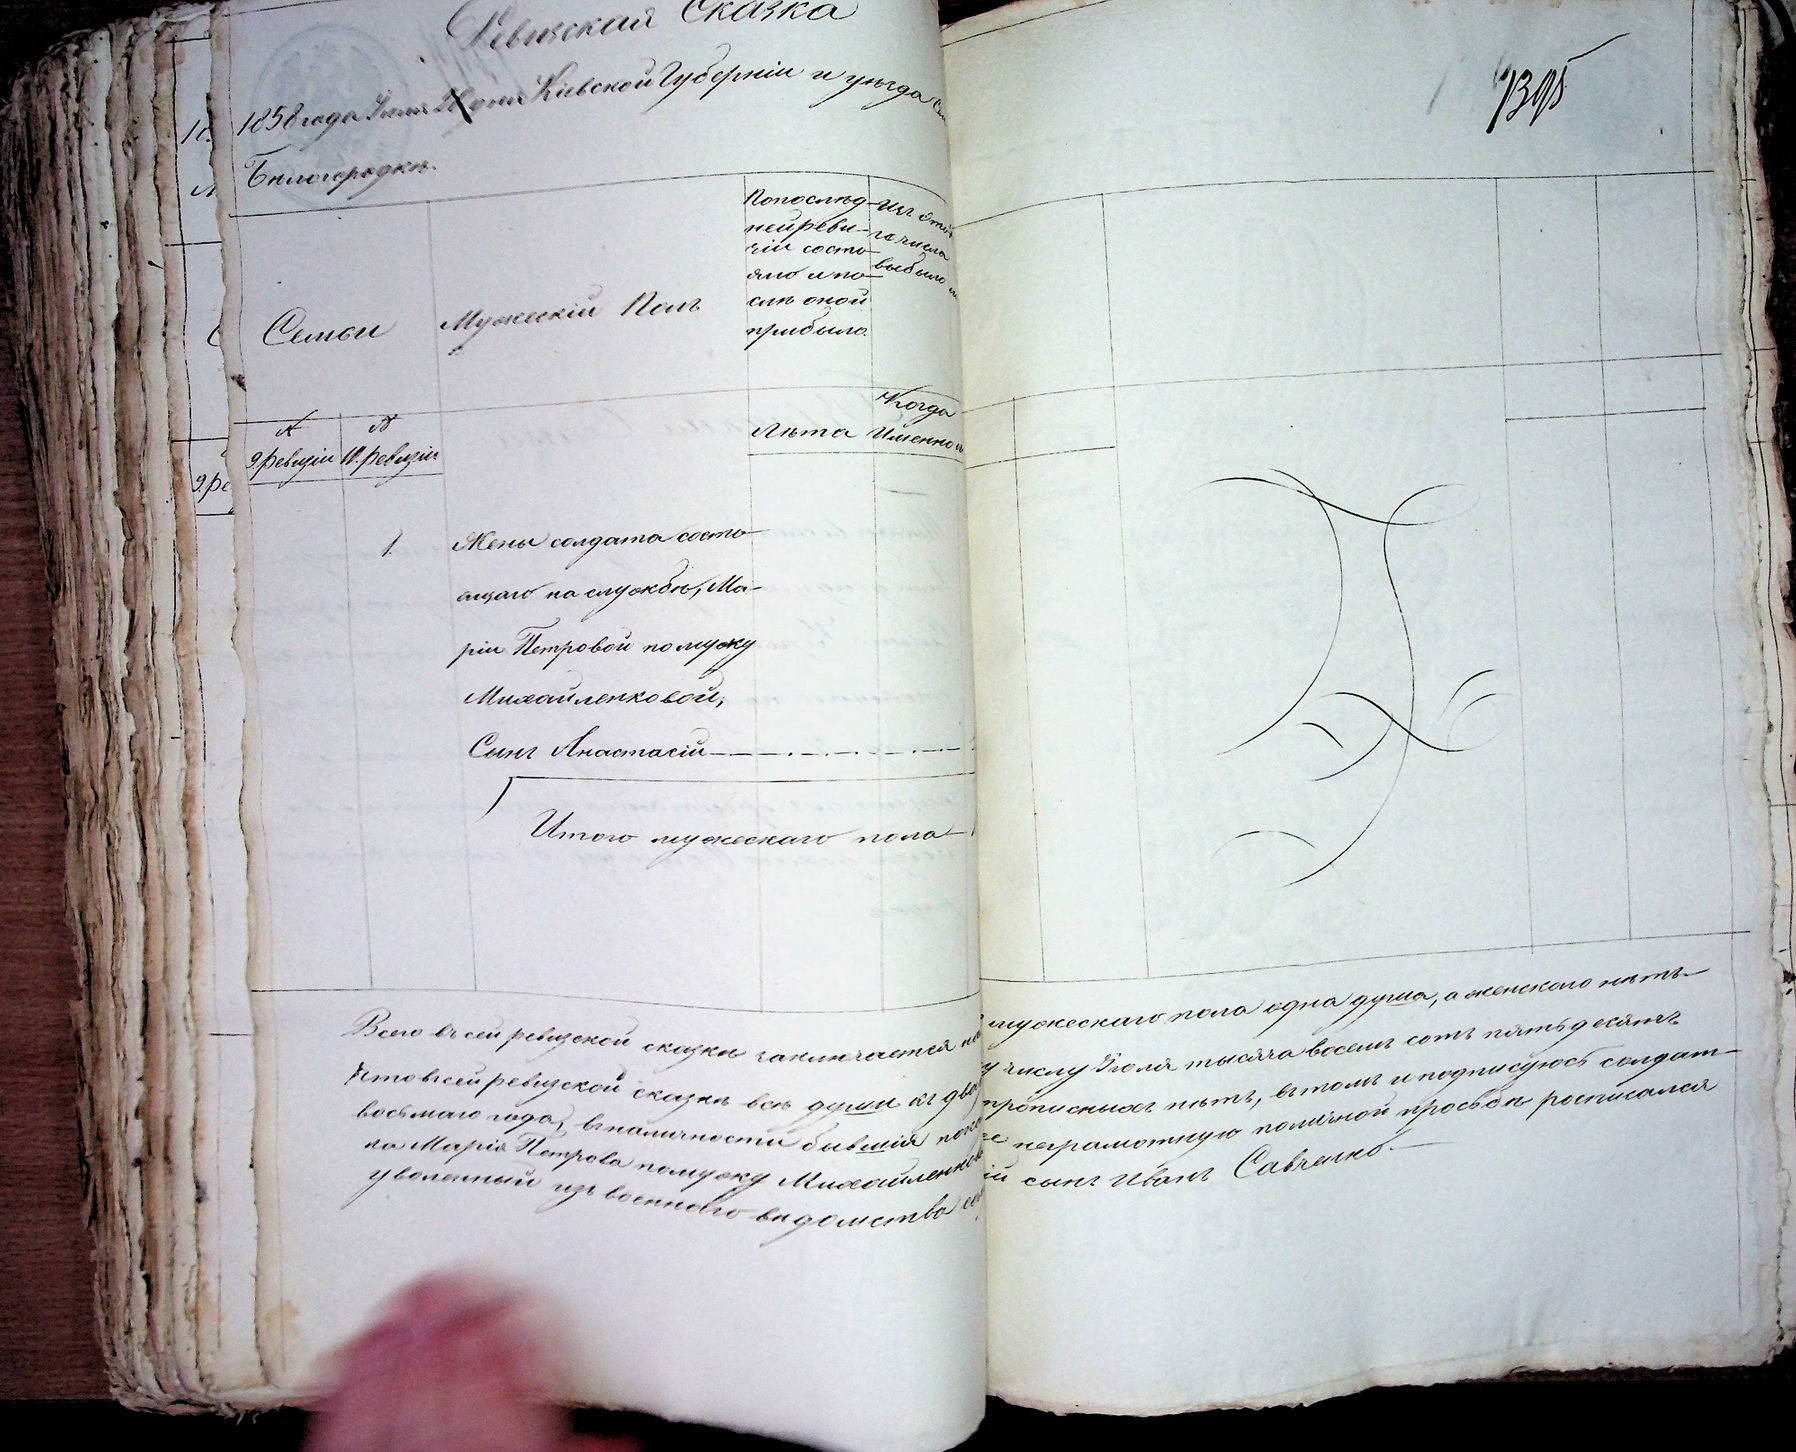 Ревизская Сказка
1858 года Юня дня Кіевской Губерніи и уезда
Билогородки.
1395
Семьи
Мужескій Полъ
Попослѣд-
ней реви-
зіи состо-
яло и по-
слѣ оной
прибыло
Изъ
числа
выбыло
№
№
9. ревизіи 10. ревизіи
Лѣта
Когда
Именно
1.
Жены солдата состо-
ящаго на службѣ, Ма-
ріи Петровой по мужу
Михайленковой,
Сынъ Анастасій
Итого мужескаго пола
Всего въ сей ревизской сказкѣ заключается мужескаго пола одна душа, а женскаго нѣтъ
Что въ сей ревизской сказкѣ всѣ души къ числу Юля тысяча восемь сотъ пятьдесятъ
восьмаго года, въ наличности бывшія прописныхъ нѣтъ, въ томъ и подписуюсь солдат-
ка Марія Петрова по мужу Михайленкова неграмотную по личной просьбѣ росписался
уволенный изъ военнаго вѣдомства сынъ Иванъ Савченко.